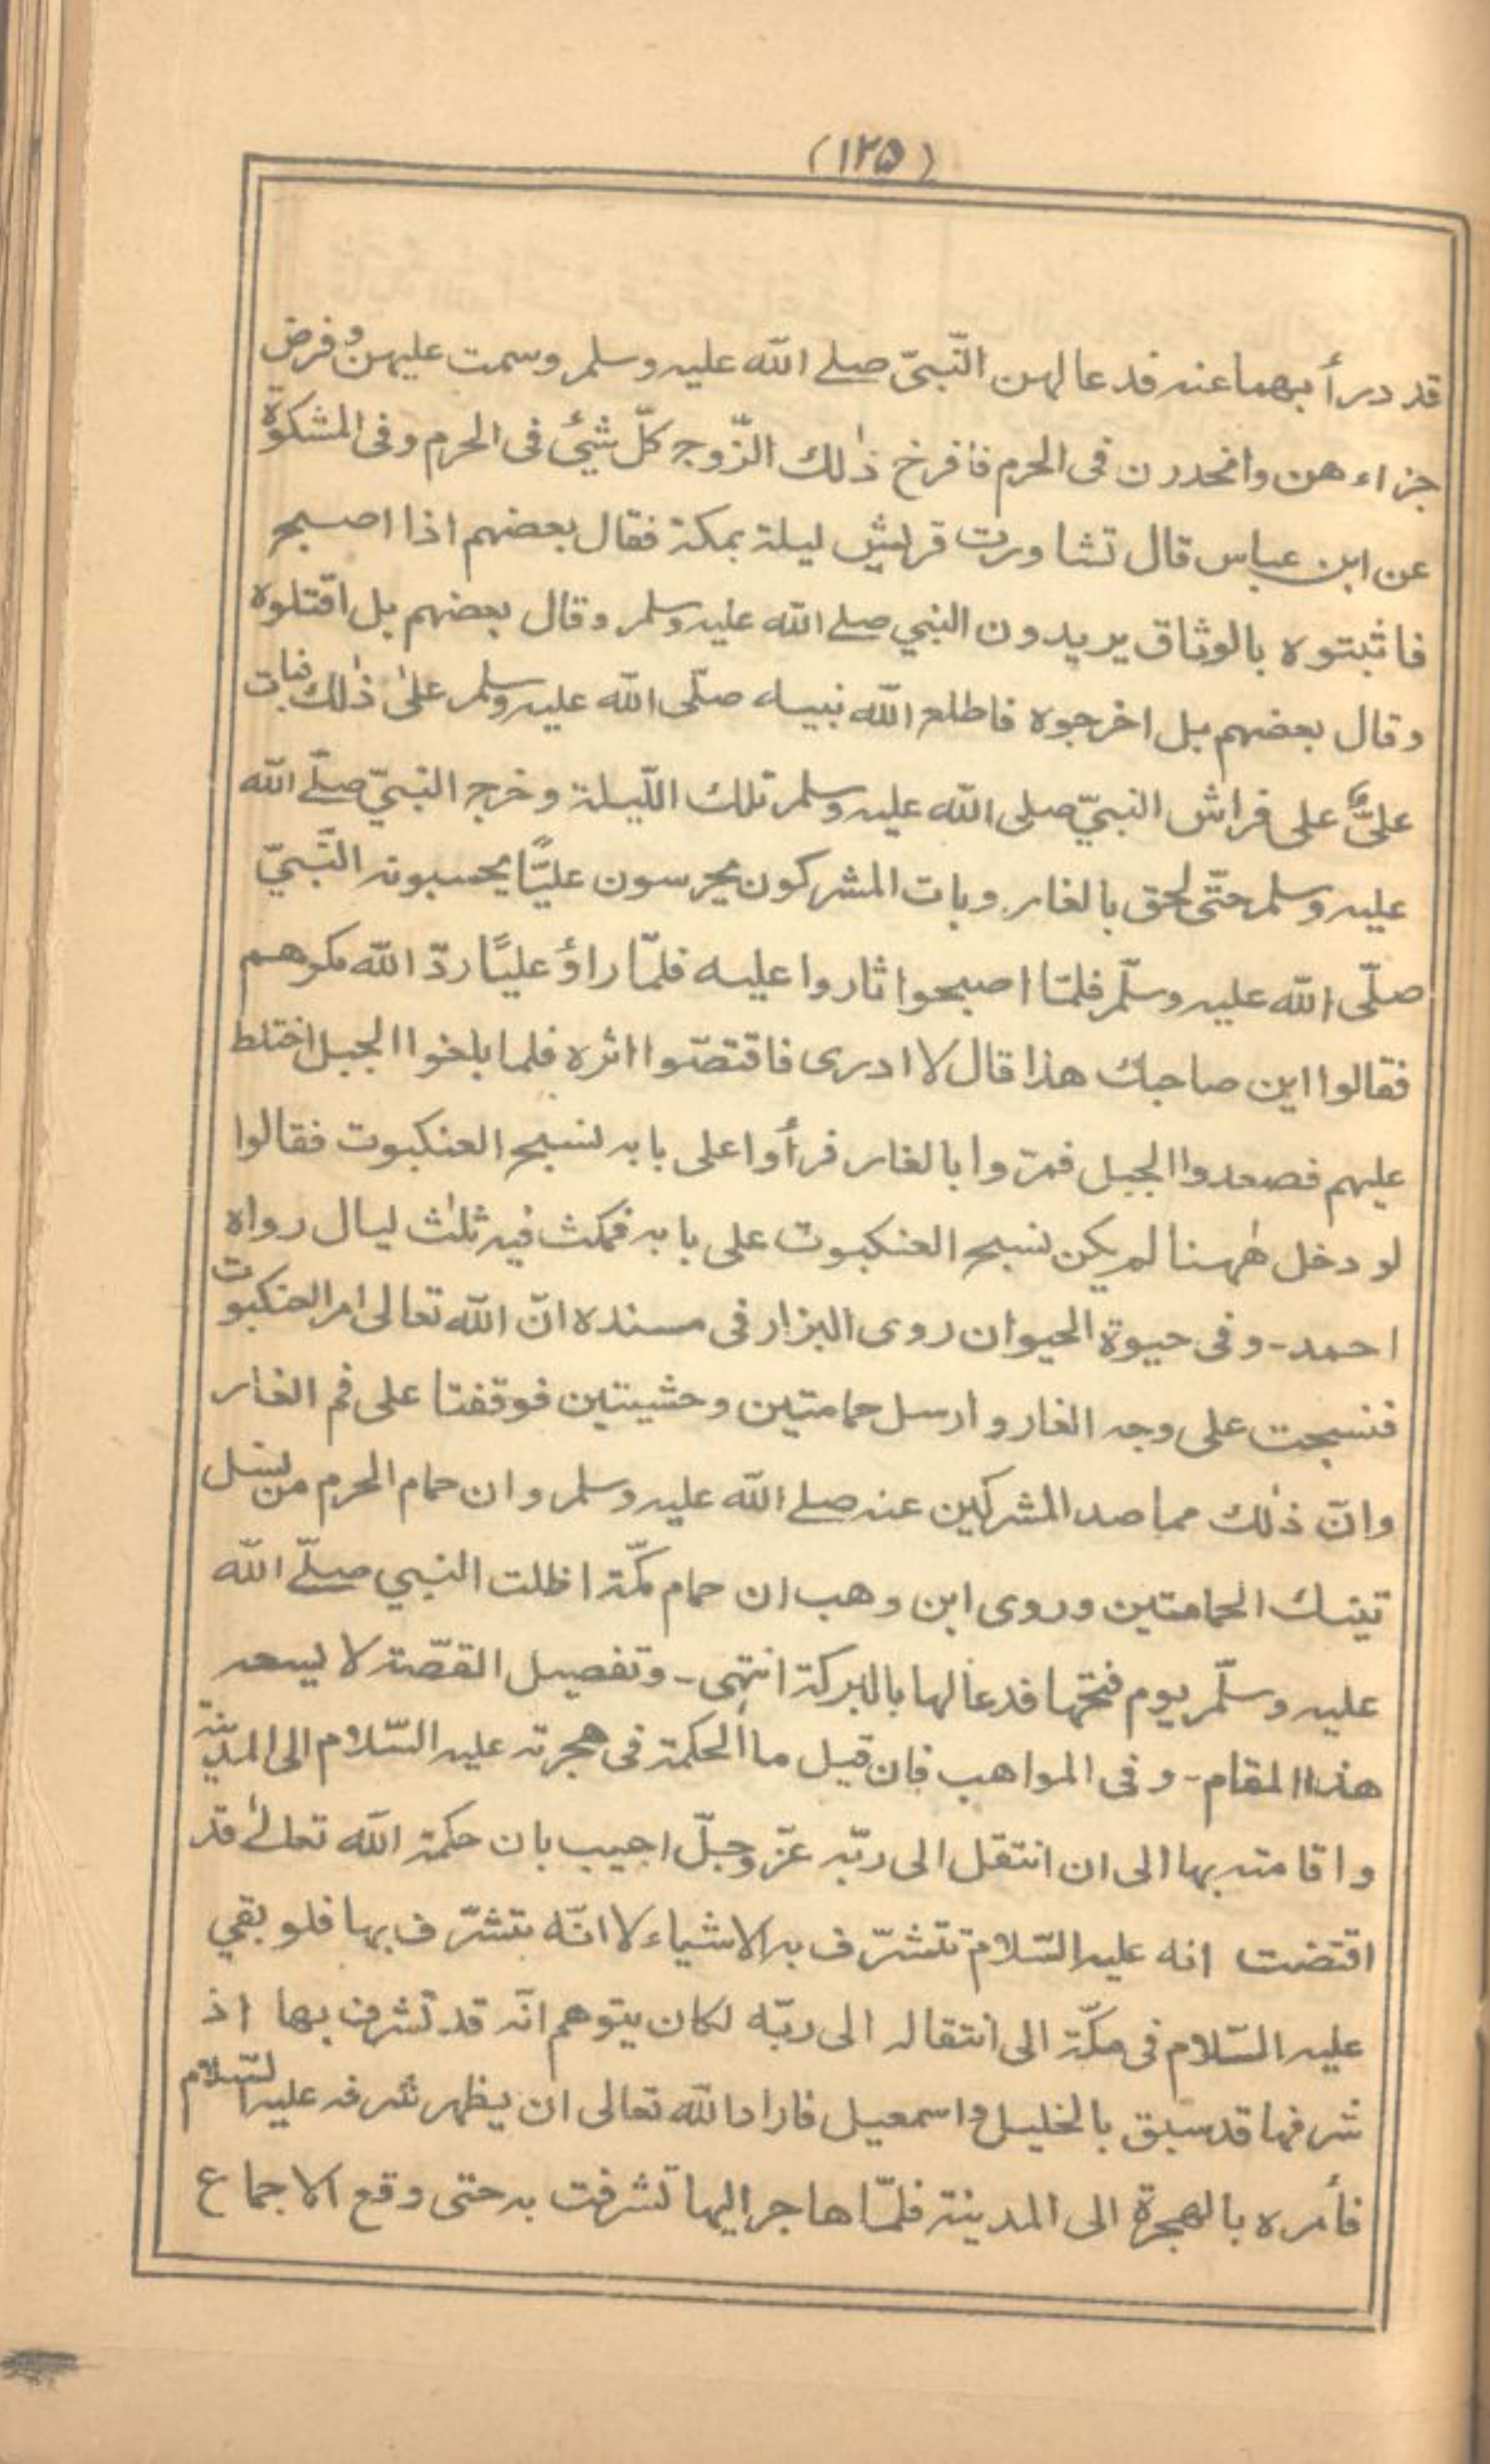 (١٢٥)
قد درأ بهما عنه فدعا لهن النّبيّ صلے الله عليه وسلم وسمت عليهن وفرض
جزاءهن وانحدرن فى الحرم فافرخ ذٰلك الزّوج كلّ شيئ فى الحرم وفى المشكوٰة
عن ابن عباس قال تشاورت قريش ليلة بمكة فقال بعضهم اذا اصبح
فاثبتوه بالوثاق يريدون النبي صلے الله عليه وسلم وقال بعضهم بل اقتلوه
وقال بعضهم بل اخرجوه فاطلع الله نبيه صلّى الله عليه وسلم علىٰ ذٰلك فبات
علىٌّ على فراش النبيّ صلى الله عليه وسلم تلك اللّيلة وخرج النبيّ صلّے الله
عليه وسلم حتّى لحق بالغار وبات المشركون يحرسون عليًّا يحسبونه النّبيّ
صلّى الله عليه وسلّم فلمّا اصبحوا ثاروا عليه فلمّا راؤ عليًّا ردّ الله مكرهم
فقالوا اين صاحبك هذا قال لا ادرى فاقتصّوا اثره فلما بلغوا الجبل اختلط
عليهم فصعدوا الجبل فمرّوا بالغار فرأوا على بابه نسج العنكبوت فقالوا
لو دخل هٰهنا لم يكن نسج العنكبوت على بابه فمكث فيه ثلٰث ليال رواه
احمد - وفى حيوة الحيوان روى البزار فى مسنده انّ الله تعالى امر العنكبوت
فنسجت على وجه الغار وارسل حمامتين وحشيتين فوقفتا على فم الغار
وانّ ذٰلك مما صد المشركين عنه صلے الله عليه وسلم وان حمام الحرم من نسل
تينك الحمامتين وروى ابن وهب ان حمام مكّة اظلت النبي صلّے الله
عليه وسلّم يوم فتحها فدعا لها بالبركة انتهى - وتفصيل القصّة لا يسعه
هذا المقام - وفى المواهب فان قيل ما الحكمة فى هجرته عليه السّلام الى المدينة
واقامته بها الى ان انتقل الى ربّه عزّ وجلّ اجيب بان حكمة الله تعالےٰ قد
اقتضت انه عليه السّلام تتشرّف به الاشياء لا انّه يتشرّف بها فلو بقي
عليه السّلام فى مكّة الى انتقاله الى ربّه لكان يتوهم انّه قد تشرف بها اذ
شرفها قد سبق بالخليل واسمعيل فاراد الله تعالى ان يظهر شرفه عليه السّلام
فأمره بالهجرة الى المدينة فلمّا هاجر اليها تشرفت به حتى وقع الاجماع